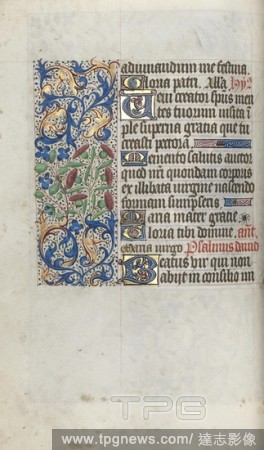 adiuvandum me festina.
Gloria patri. Alla. ymp̃.
Veni creator sp̃us men
tes tuorum visita i
ple superna gratia que tu
creasti pectora.
Memento salutis auctor
quod nr̃i quondam corporis
ex illibata virgine nascendo
formam sumpseris.
Maria mater gratie
Gloria tibi domine. añt.
Maria virgo Psalmus david
Beatus vir qui non
abijt in consilio im
TPG
www.tpgnews.com / 達志影像